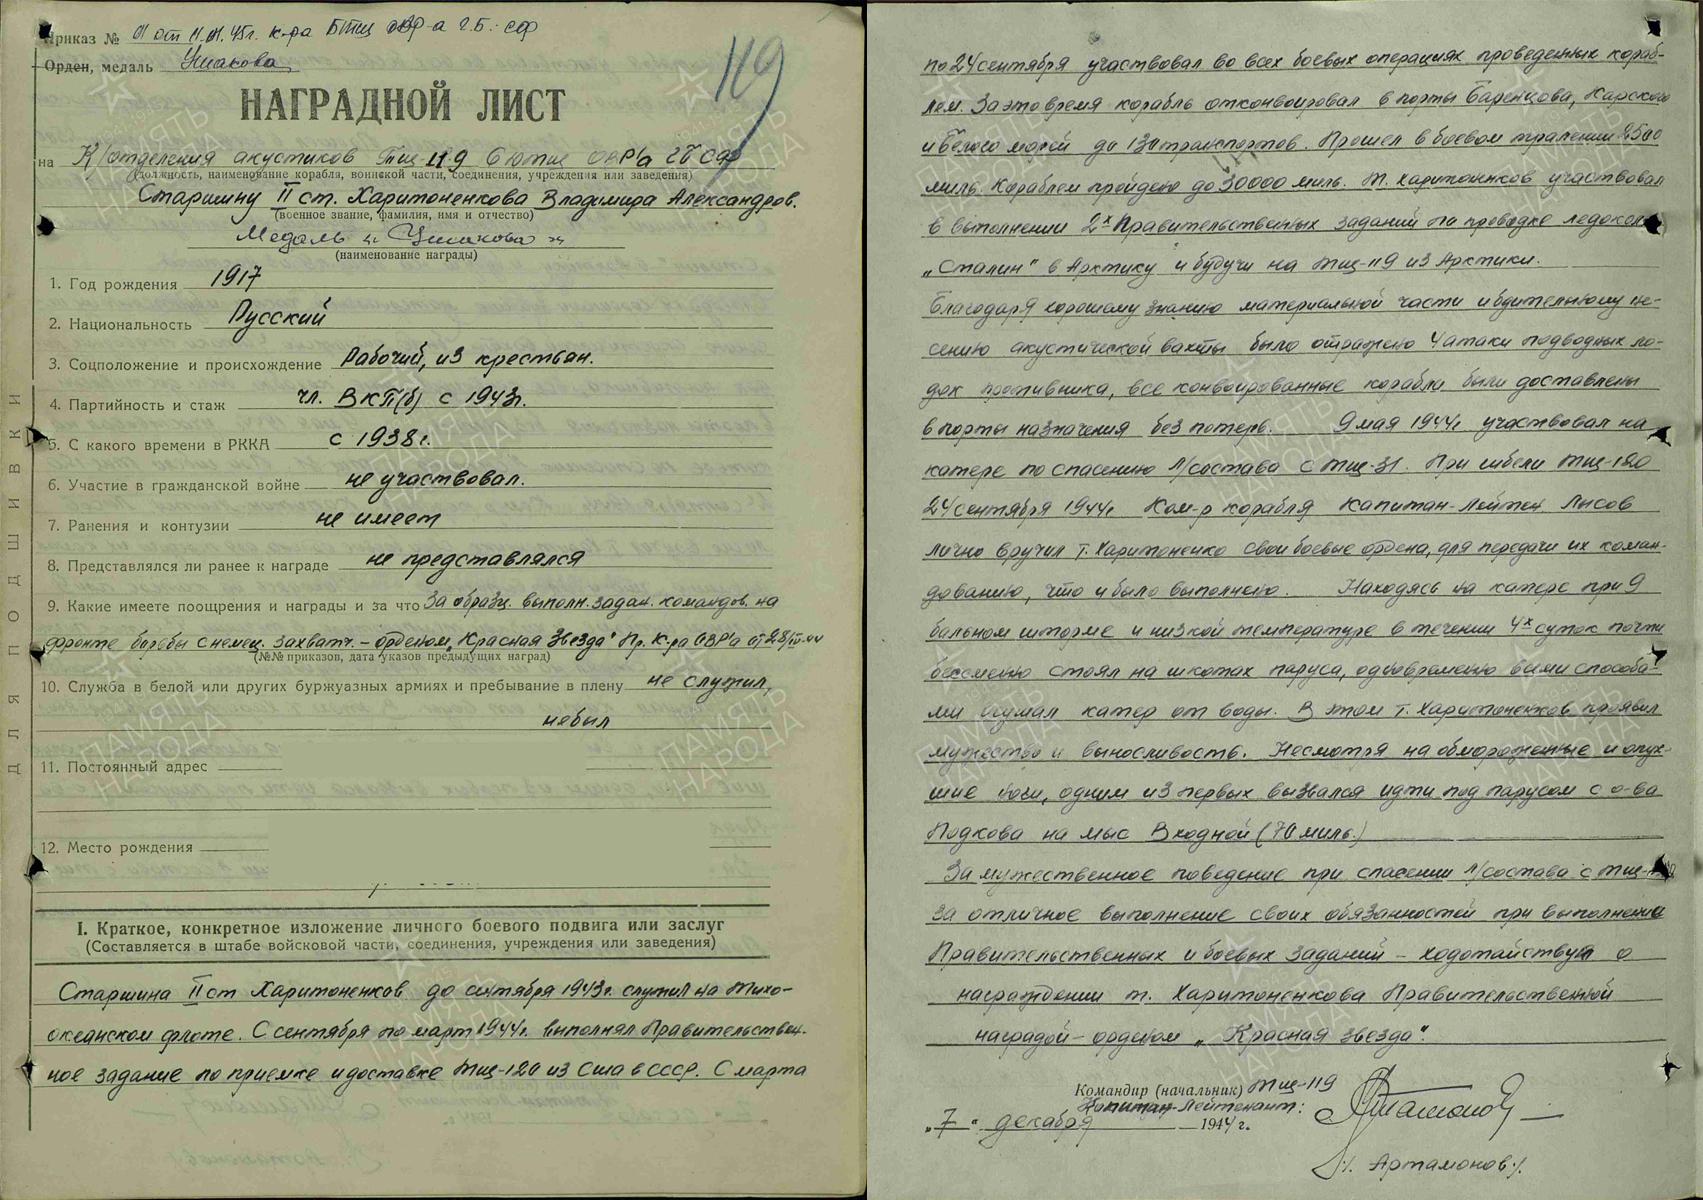 Приказ № 01 от 11.01.45г. к-ра БТЩ ОВР-а г.Б: СФ
Орден, медаль Ушакова
119
НАГРАДНОЙ ЛИСТ
на К/отделения акустиков ТЩ-119 ОВР'а СФ
(должность, наименование корабля, воинской части, соединения, учреждения или заведения)
Старшину II ст. Харитоненкова Владимира Александров.
(военное звание, фамилия, имя и отчество)
Медаль „Ушакова"
(наименование награды)
1. Год рождения 1917
2. Национальность Русский
3. Соцположение и происхождение Рабочий, из крестьян.
4. Партийность и стаж чл. ВКП(б) с 1943г.
5. С какого времени в РККА с 1938г.
6. Участие в гражданской войне не участвовал.
7. Ранения и контузии не имеет
8. Представлялся ли ранее к награде не представлялся
9. Какие имеете поощрения и награды и за что За образц. выполн. задан. командов. на
фронте борьбы с немец. захватч. – орденом „Красная звезда" Пр. К-ра ОВР'а от 28/
(№№ приказов, дата указов предыдущих наград)
10. Служба в белой или других буржуазных армиях и пребывание в плену не служил,
не был
11. Постоянный адрес
12. Место рождения
ДЛЯ ПОДШИВКИ
I. Краткое, конкретное изложение личного боевого подвига или заслуг
(Составляется в штабе войсковой части, соединения, учреждения или заведения)
Старшина II ст Харитоненков до сентября 1943г. служил на Тихо-
океанском флоте. С сентября по март 1944г. выполнял Правительствен-
ное задание по приемке и доставке ТЩ-120 из США в СССР. С марта
по 24 сентября участвовал во всех боевых операциях проведенных кораб-
лем. За это время корабль отконвоировал в порты Баренцова, Карского
и Белого морей до 130 транспортов. Прошел в боевом тралении 2500
миль. Кораблем пройдено до 30000 миль. Т. Харитоненков участвовал
в выполнении 2х Правительственных заданий по проводке ледокола
„Сталин" в Арктику и будучи на ТЩ-119 из Арктики.
Благодаря хорошему знанию материальной части и бдительному не-
сению акустической вахты было отражено 4 атаки подводных ло-
док противника, все конвоированные корабли были доставлены
в порты назначения без потерь. 9 мая 1944г участвовал на
катере по спасению л/состава с ТЩ-31. При гибели ТЩ-120
24 сентября 1944г Ком-р корабля Капитан-Лейтен. Лысов
лично вручил т. Харитоненко свои боевые ордена, для передачи их коман-
дованию, что и было выполнено. Находясь на катере при 9
бальном шторме и низкой температуре в течении 4х суток почти
бессменно стоял на шкотах паруса, одновременно всеми способа-
ми осушал катер от воды. В этом т. Харитоненков проявил
мужество и выносливость. Несмотря на обмороженные и опух-
шие ноги, одним из первых вызвался идти под парусом с о-ва
Подкова на мыс Входной (70 миль.)
За мужественное поведение при спасении л/состава с ТЩ-
за отличное выполнение своих обязанностей при выполнение
Правительственных и боевых заданий – ходотайствую о
награждении т. Харитоненкова Правительственной
наградой – орденом „Красная звезда".
Командир (начальник) ТЩ-119
Капитан-Лейтенант:
„7" декабря 1944 г.
/. Артамонов./
ПАМЯТЬ НАРОДА